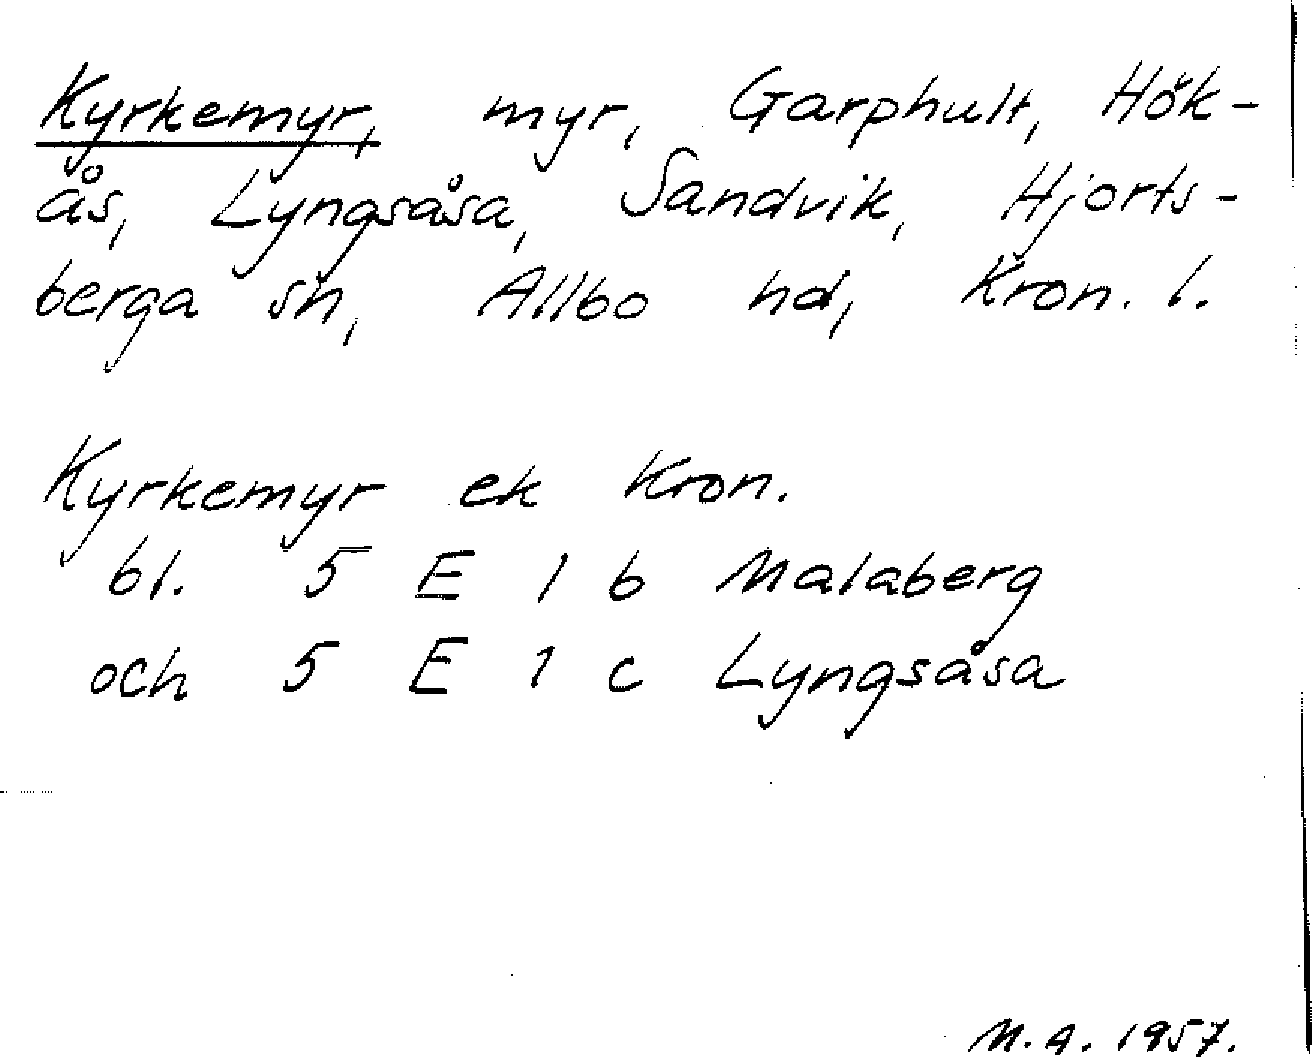 Kyrkemyr, myr, Garphult, Hök-
ås, Lyngsåsa, Sandvik, Hjorts-
berga sn, Allbo hd, Kron. l.
Kyrkemyr ek Kron.
bl. 5 E 1 b Malaberg
och 5 E 1 c Lyngsåsa
M.A. 1957.